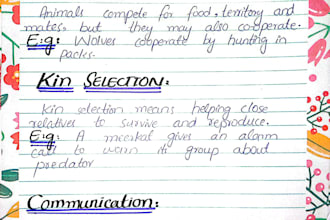 Animals compete for food, territory and
mates, but they may also co-operate.
E.g: Wolves cooperate by hunting in
packs.
KIN SELECTION:
Kin selection means helping close
relatives to survive and reproduce.
E.g: A meerkat gives an alarm
call to warn its group about
predator
Communication: